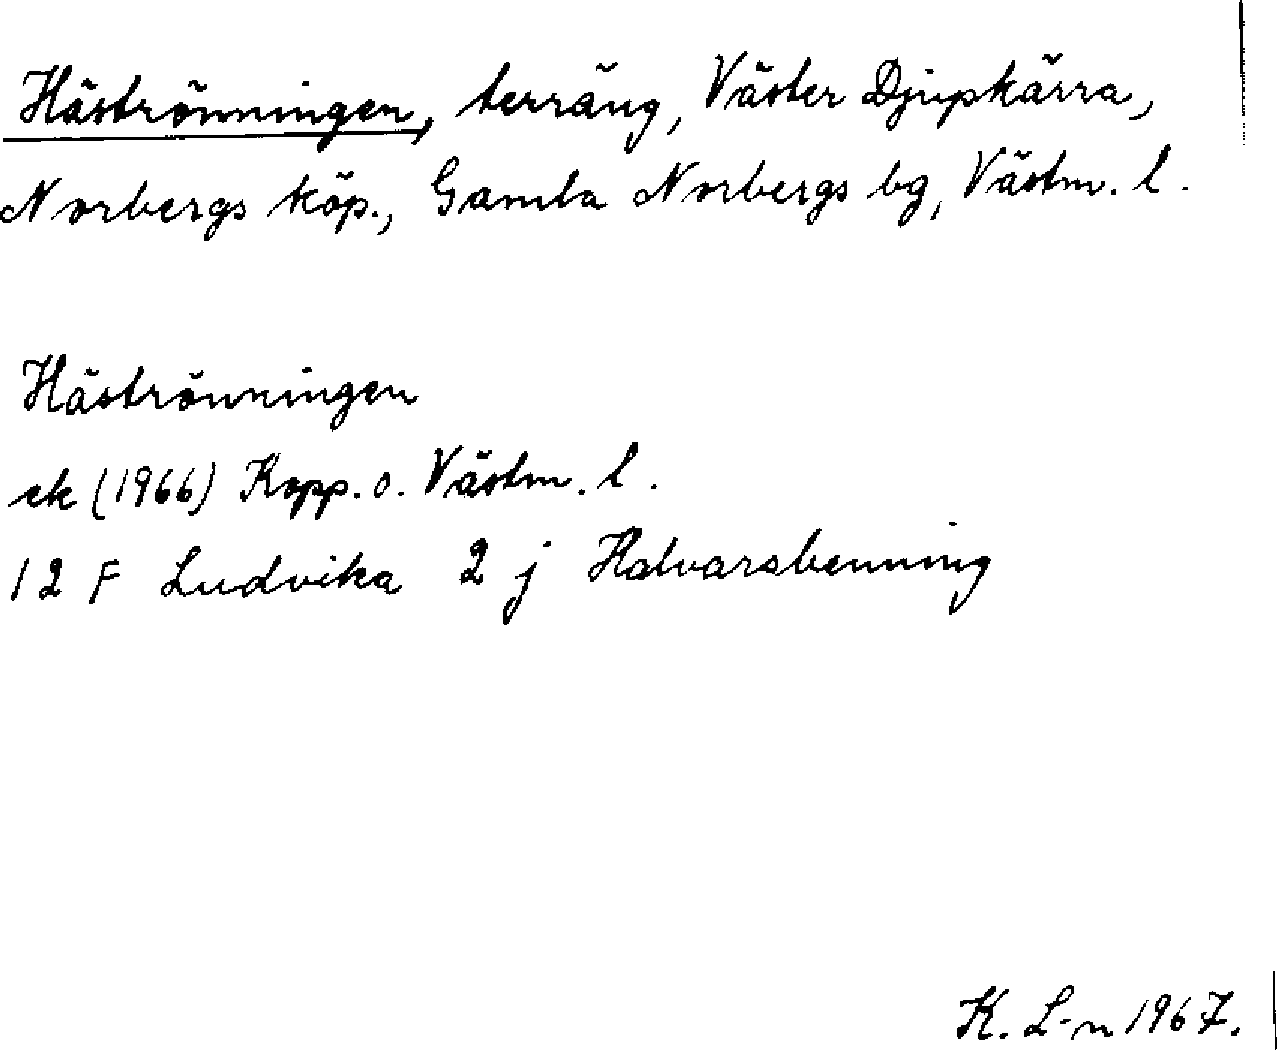 Häströnningen, terräng, Väster Djupkärra,
Norbergs köp., Gamla Norbergs bg, Västm. l.
Häströnningen
ek (1966) Kopp. o. Västm. l.
12 F Ludvika 2 j Halvarsbenning
K. L-n 1967.